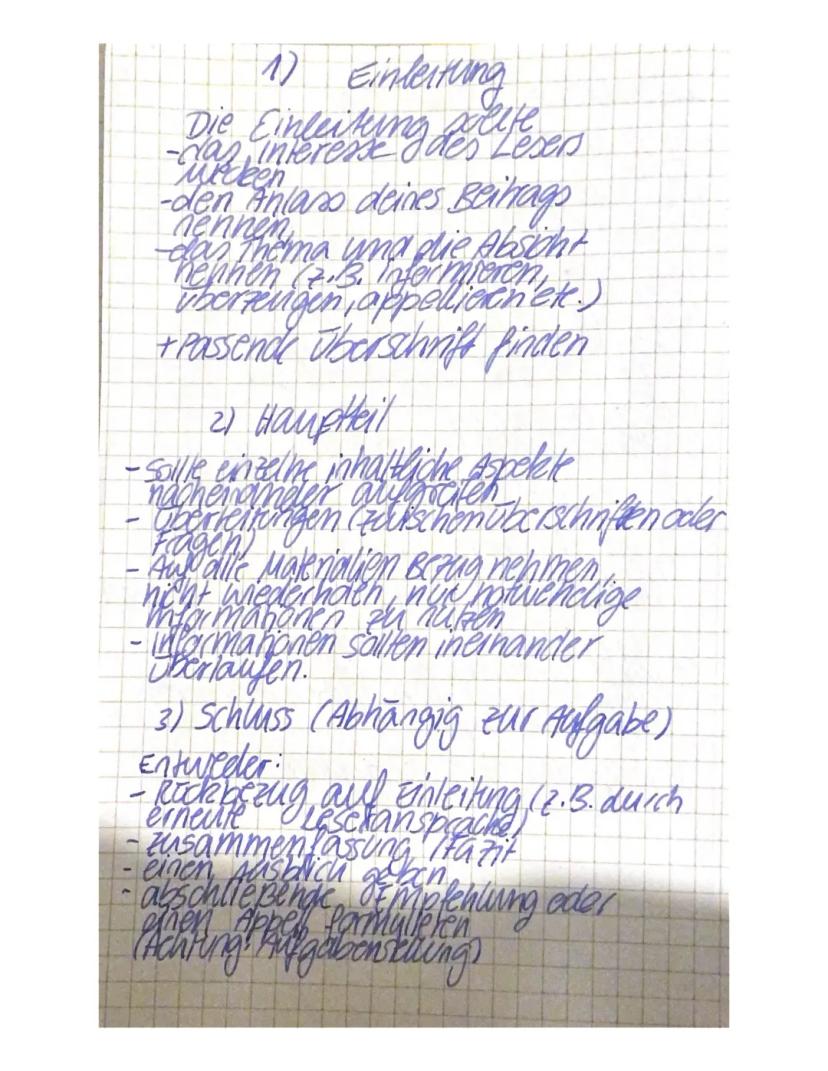 1) Einleitung
Die Einleitung sollte
-das Interesse des Lesers
wecken
-den Anlass deines Beitrags
nennen,
-das Thema und die Absicht
nennen (z.B. informieren,
überzeugen, appellieren etc.)
+Passende Überschrift finden
2) Hauptteil
- Sollte einzelne inhaltliche Aspekte
nacheinander aufgreifen
- Überleitungen (Zwischenüberschriften oder
Fragen)
- Auf alle Materialien Bezug nehmen,
nicht wiederholen, nur notwendige
Informationen zu nutzen
- Informationen sollen ineinander
überlaufen.
3) Schluss (Abhängig zur Aufgabe)
Entweder:
- Rückbezug auf Einleitung (z.B. durch
erneute Leseransprache)
- Zusammenfassung / Fazit
- einen Ausblick geben
- abschließende Empfehlung oder
einen Appell formulieren
(Achtung: Aufgabenstellung)